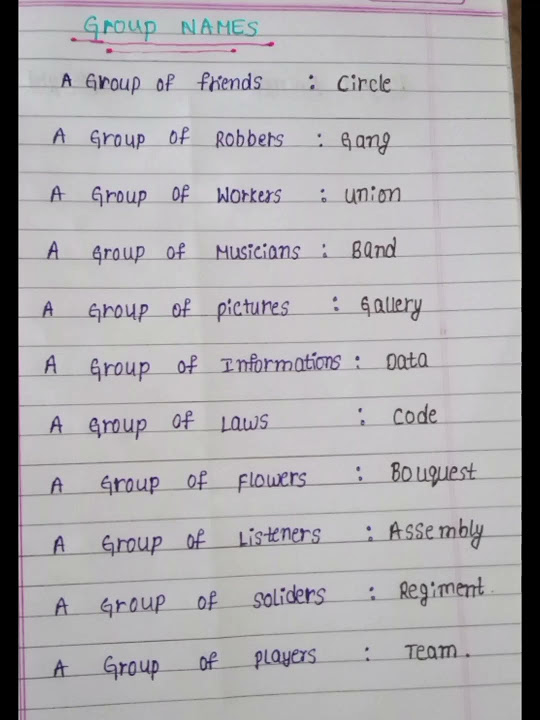 GROUP NAMES
A Group of friends : Circle
A Group of Robbers : Gang
A Group of Workers : union
A Group of Musicians : Band
A Group of pictures : Gallery
A Group of Informations : Data
A Group of Laws : Code
A Group of Flowers : Bouquest
A Group of Listeners : Assembly
A Group of soliders : Regiment.
A Group of players : Team.